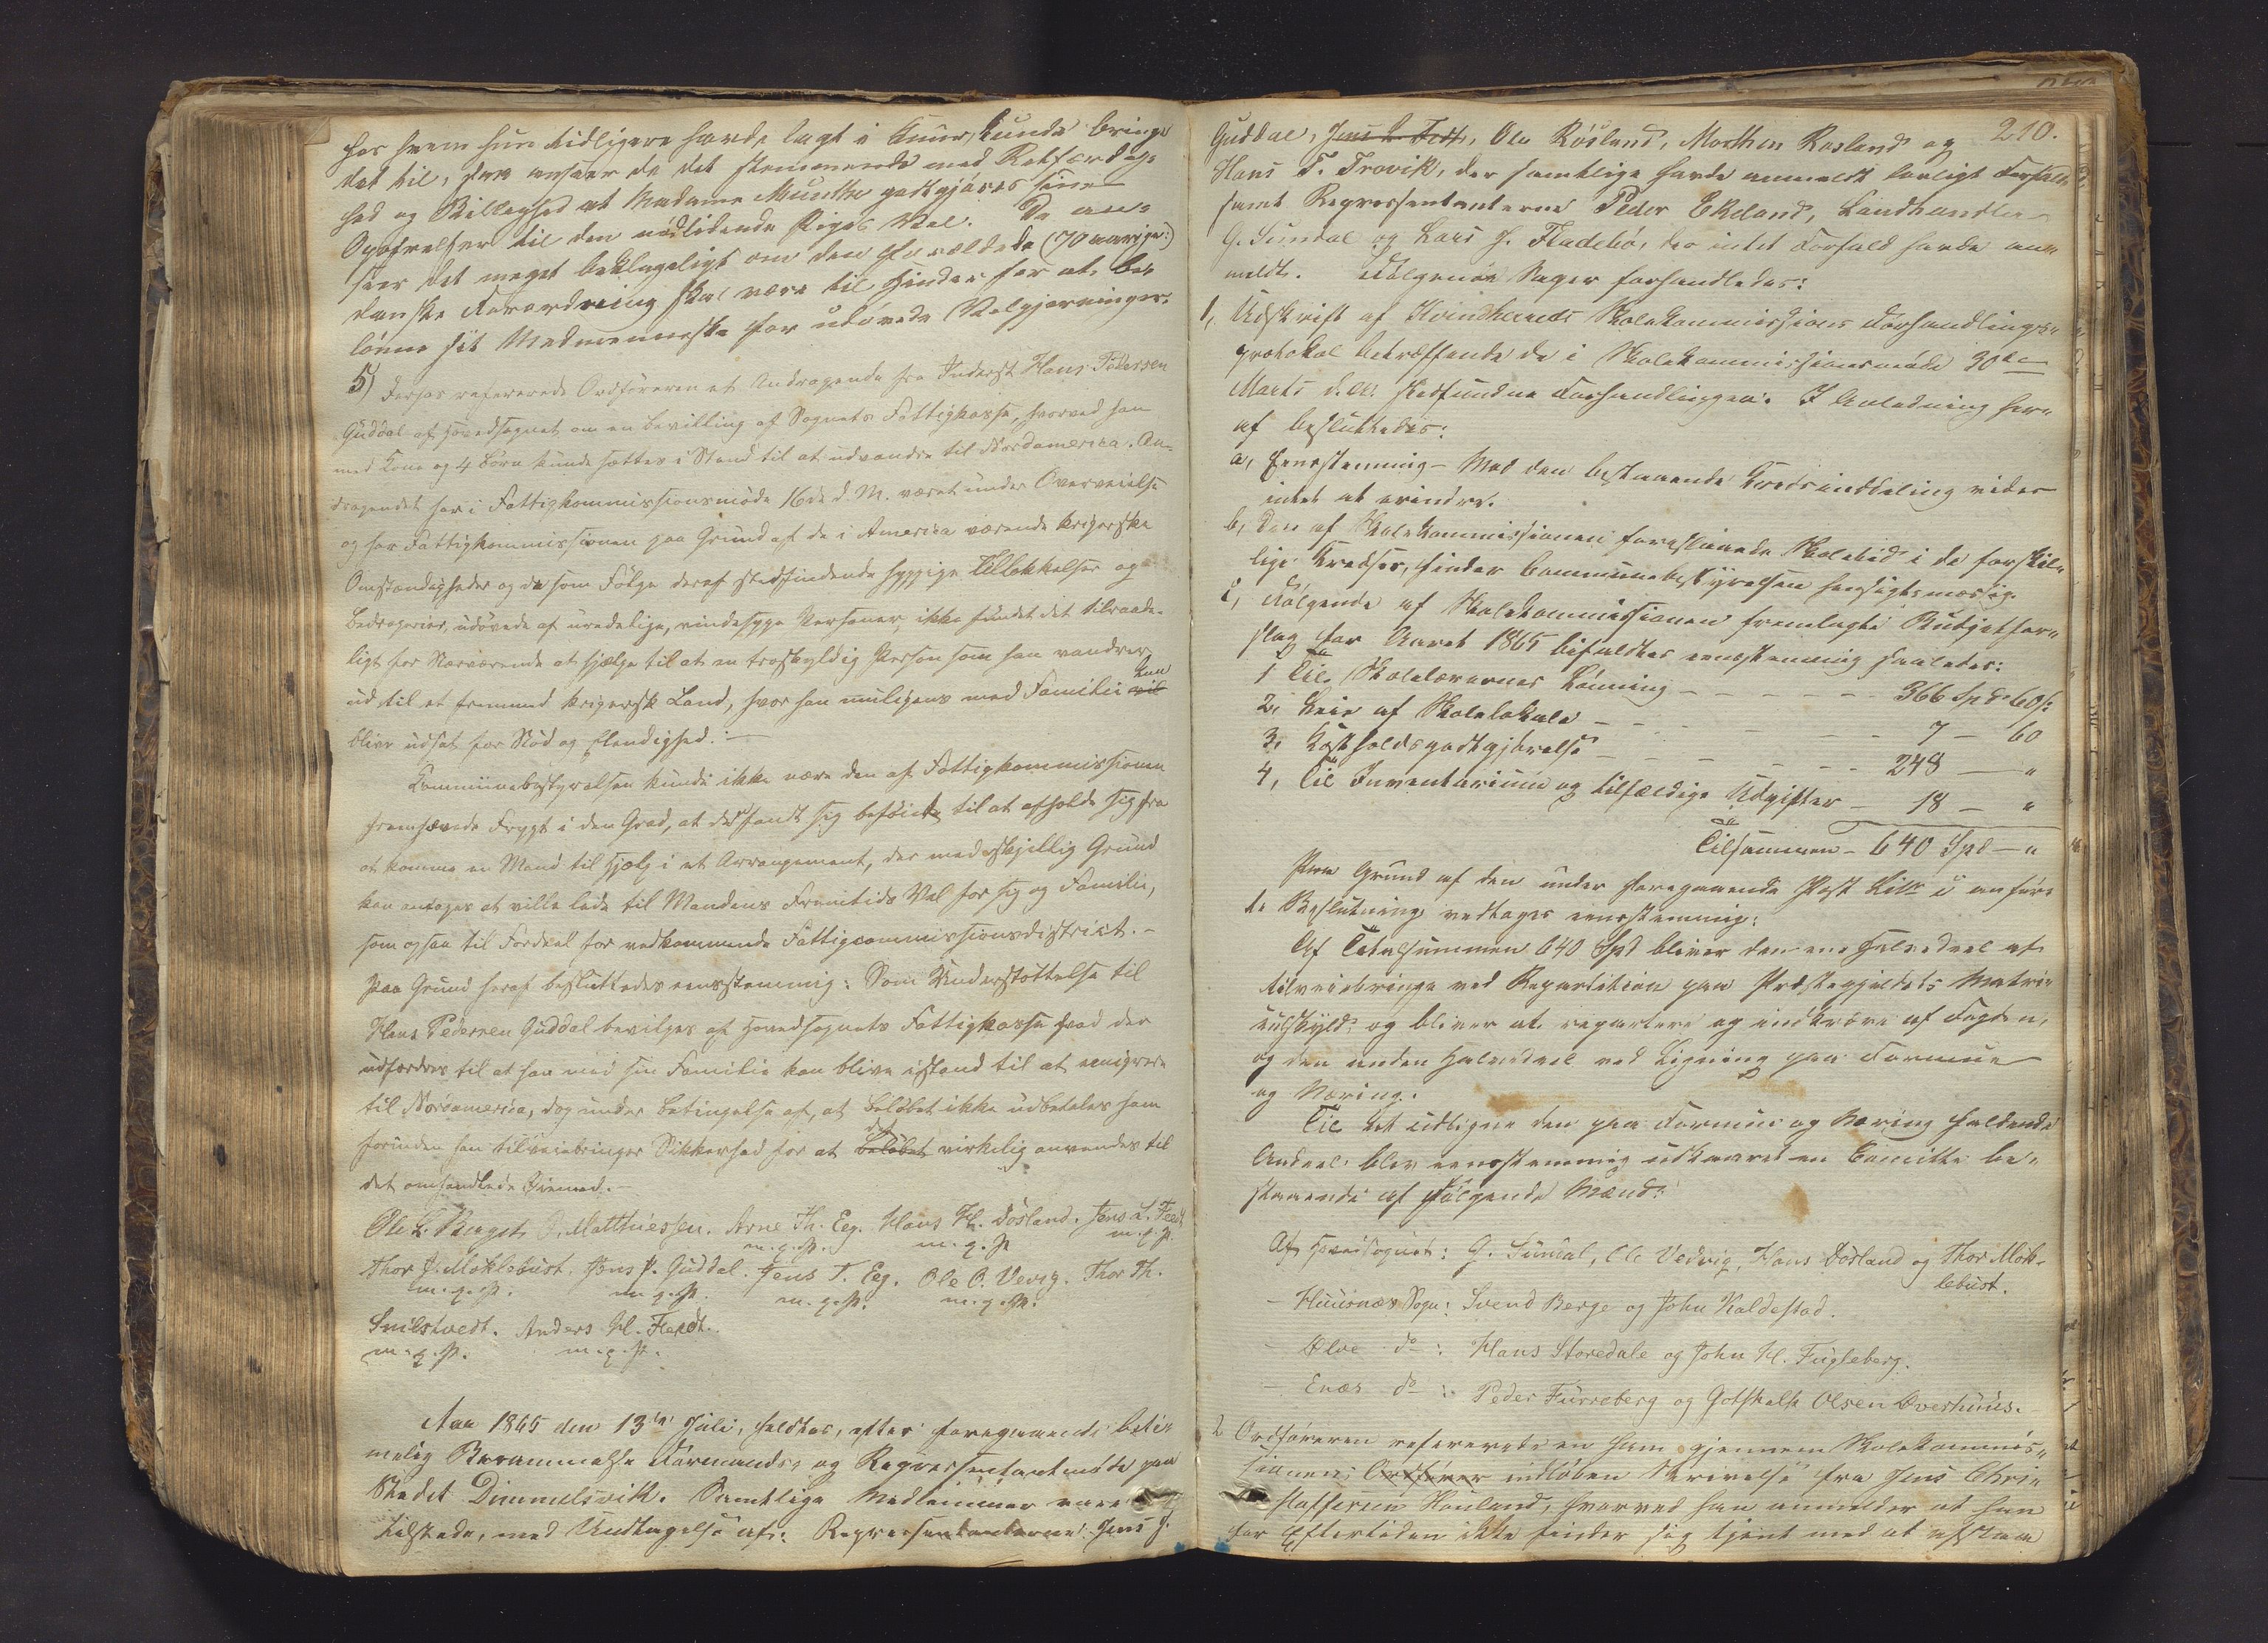 hos hvem hun tidligere havde lagt i Kuur, kunde bringe
det til, saa anseer de det stemmende med Retfærdig-
hed og Billighed at Madame Munthe godtgjøres sine
Opofrelser til den nødlidende Piges Vel. De an-
seer det meget beklageligt om den forældede (70 aarige:)
danske Forordning skal være til Hinder for at be-
lønne sit Medmenneske for udøvede Velgjerninger.
5) Derpaa refererede Ordføreren et Andragende fra Inderst Hans Pedersen
Guddal af Hovedsognet om en Bevilling af Sognets Fattigkasse, hvorved han
med Kone og 4 Børn kunde sættes i Stand til at udvandre til Nordamerica. An-
dragendet har i Fattigkommissionsmøde 16de d. M. været under Overveielse
og har Fattigkommissionen paa Grund af de i America værende krigerske
Omstændigheder og de som Følge deraf stedfindende hyppige Tillokkelser og
Bedragerier, udøvede af uredelige, vindesyge Personer, ikke fundet det tilraade-
ligt for Nærværende at hjælpe til at en troskyldig Person som han vandrer
ud til et fremmed krigersk Land, hvor han muligens med Familie vil kan
blive udsat for Nød og Elendighed. —
Kommunebestyrelsen kunde ikke nære den af Fattigkommissionen
fremhævede Frygt i den Grad, at det fandt sig beføiet til at afholde sig fra
at komme en Mand til Hjælp i et Arrangement, der med skjellig Grund
kan antages at ville lede til Mandens Fremtids Vel for sig og Familie,
som ogsaa til Fordeel for vedkommende Fattigcommissionsdistrict. -
Paa Grund heraf besluttedes eensstemmig: Som Understøttelse til
Hans Pedersen Guddal bevilges af Hovedsognets Fattigkasse hvad der
udfordres til at han med sin Familie kan blive istand til at emigrere
til Nordamerica, dog under Betingelse af, at Beløbet ikke udbetales ham
forinden han tilveiebringer Sikkerhed for at Beløbet det virkelig anvendes til
det omhandlede Øiemed. —
Ole L. J. Matthiessen. Arne Th. Eeg. Hans H. Døsland. Jens L. Feet
m. q. P. m. q. P m. q. P.
Thor J. Moklebust. Jens P. Guddal. Jens T. Eeg. Ole O. Vevig. Thor Th.
m. q. P. m. q. P. m. q. P. m. q. P.
Smilstvedt. Anders H. Flændt.
m. q. P. m. q. P.
Aar 1865 den 13de Juli, holdtes, efter foregaaende beti-
melig Berammelse Formands- og Repræsentantmøde paa
Stedet Dimmelsvik. Samtlige Medlemmer vare
tilstede, med Undtagelse af: Repræsentanterne Jens J.
210.
Guddal, Jens L. Fett, Ole Røsland, Morthen Rosland og
Hans T. Trovik, der samtlige havde anmeldt lovligt Forfald
samt Repræsentanterne Peder Ekeland, Landhandler
G. Sundal og Lars J. Fladebø, der intet Forfald havde an-
meldt. Følgende Sager forhandledes:
1, Udskrift af Kvindherreds Skolekommissions Forhandlings-
protokol betræffende de i Skolekommissionsmøde 30te
Marts d. A. stedfundne Forhandlinger. I Anledning her-
af besluttedes:
a, Eensstemmig - Mod den bestaaende Kredsinddeling vides
intet at erindre.
b, Den af Skolekommissionen foreslaaede Skoletid i de forskjel-
lige Kredser, finder Communebestyrelsen hensigtsmæssig.
c, Følgende af Skolekommissionen fremlagte Budgetfor-
slag for Aaret 1865 bifaldtes eensstemmig saaledes:
1 Til Skolelærernes Lønning - - - - - - 366 Spd. 60 s:
2, Leie af Skolelokale - - - - - - 7 — 60
3, Kostholdsgodtgjørelse - - - - - - 248 — "
4, Til Inventarium og tilfældige Udgifter - 18 — "
Tilsammen - 640 Spd — "
Paa Grund af den under foregaaende Post Litr c anfør-
te Beslutning vedtages eensstemmig:
Af Totalsummen 640 Spd bliver den ene Halvdeel at
tilveiebringe ved Repartition paa Præstegjeldets Matri-
kulskyld og bliver at repartere og indkræve af Fogden,
og den anden Halvdeel ved Ligning paa Formue
og Næring.
Til at udligne den paa Formue og Næring faldende
Andeel blev eensstemmig udkaaret en Comitte be-
staaende af følgende Mænd:
Af Hovedsognet: G. Sundal, Ole Vedvig, Hans Døsland og Thor Mok-
lebust.
- Huusnæs Sogn: Svend Berge og John Kaldestad.
- Ølve do: Hans Storedale og John H. Fugleberg.
- Enæs do: Peder Furreberg og Gotskalk Olsen Overhuus.
2 Ordføreren refererede en ham gjennem Skolekommis-
sionens Ordfører indløben Skrivelse fra Jens Chri-
stoffersen Houland, hvorved han anmelder at han
for Eftertiden ikke finder sig tjent med at afstaa